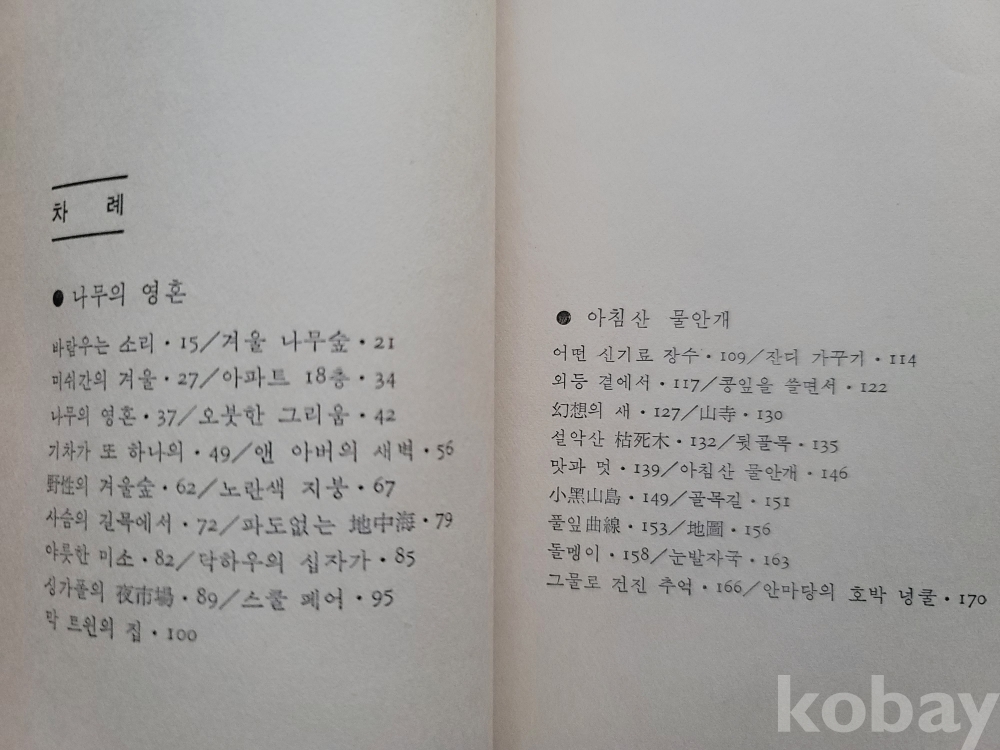 차 례
● 나무의 영혼
바람우는 소리・15/겨울 나무숲・21
미쉬간의 겨울・27/아파트 18층・34
나무의 영혼・37/오붓한 그리움・42
기차가 또 하나의・49/앤 아버의 새벽・56
野性의 겨울숲・62/노란색 지붕・67
사슴의 길목에서・72/파도없는 地中海・79
야릇한 미소・82/닥하우의 십자가・85
싱가폴의 夜市場・89/스쿨 페어・95
막 트윈의 집・100
● 아침산 물안개
어떤 신기료 장수・109/잔디 가꾸기・114
외등 곁에서・117/콩잎을 쓸면서・122
幻想의 새・127/山寺・130
설악산 枯死木・132/뒷골목・135
맛과 멋・139/아침산 물안개・146
小黑山島・149/골목길・151
풀잎曲線・153/地圖・156
돌멩이・158/눈발자국・163
그물로 건진 추억・166/안마당의 호박 넝쿨・170
kobay